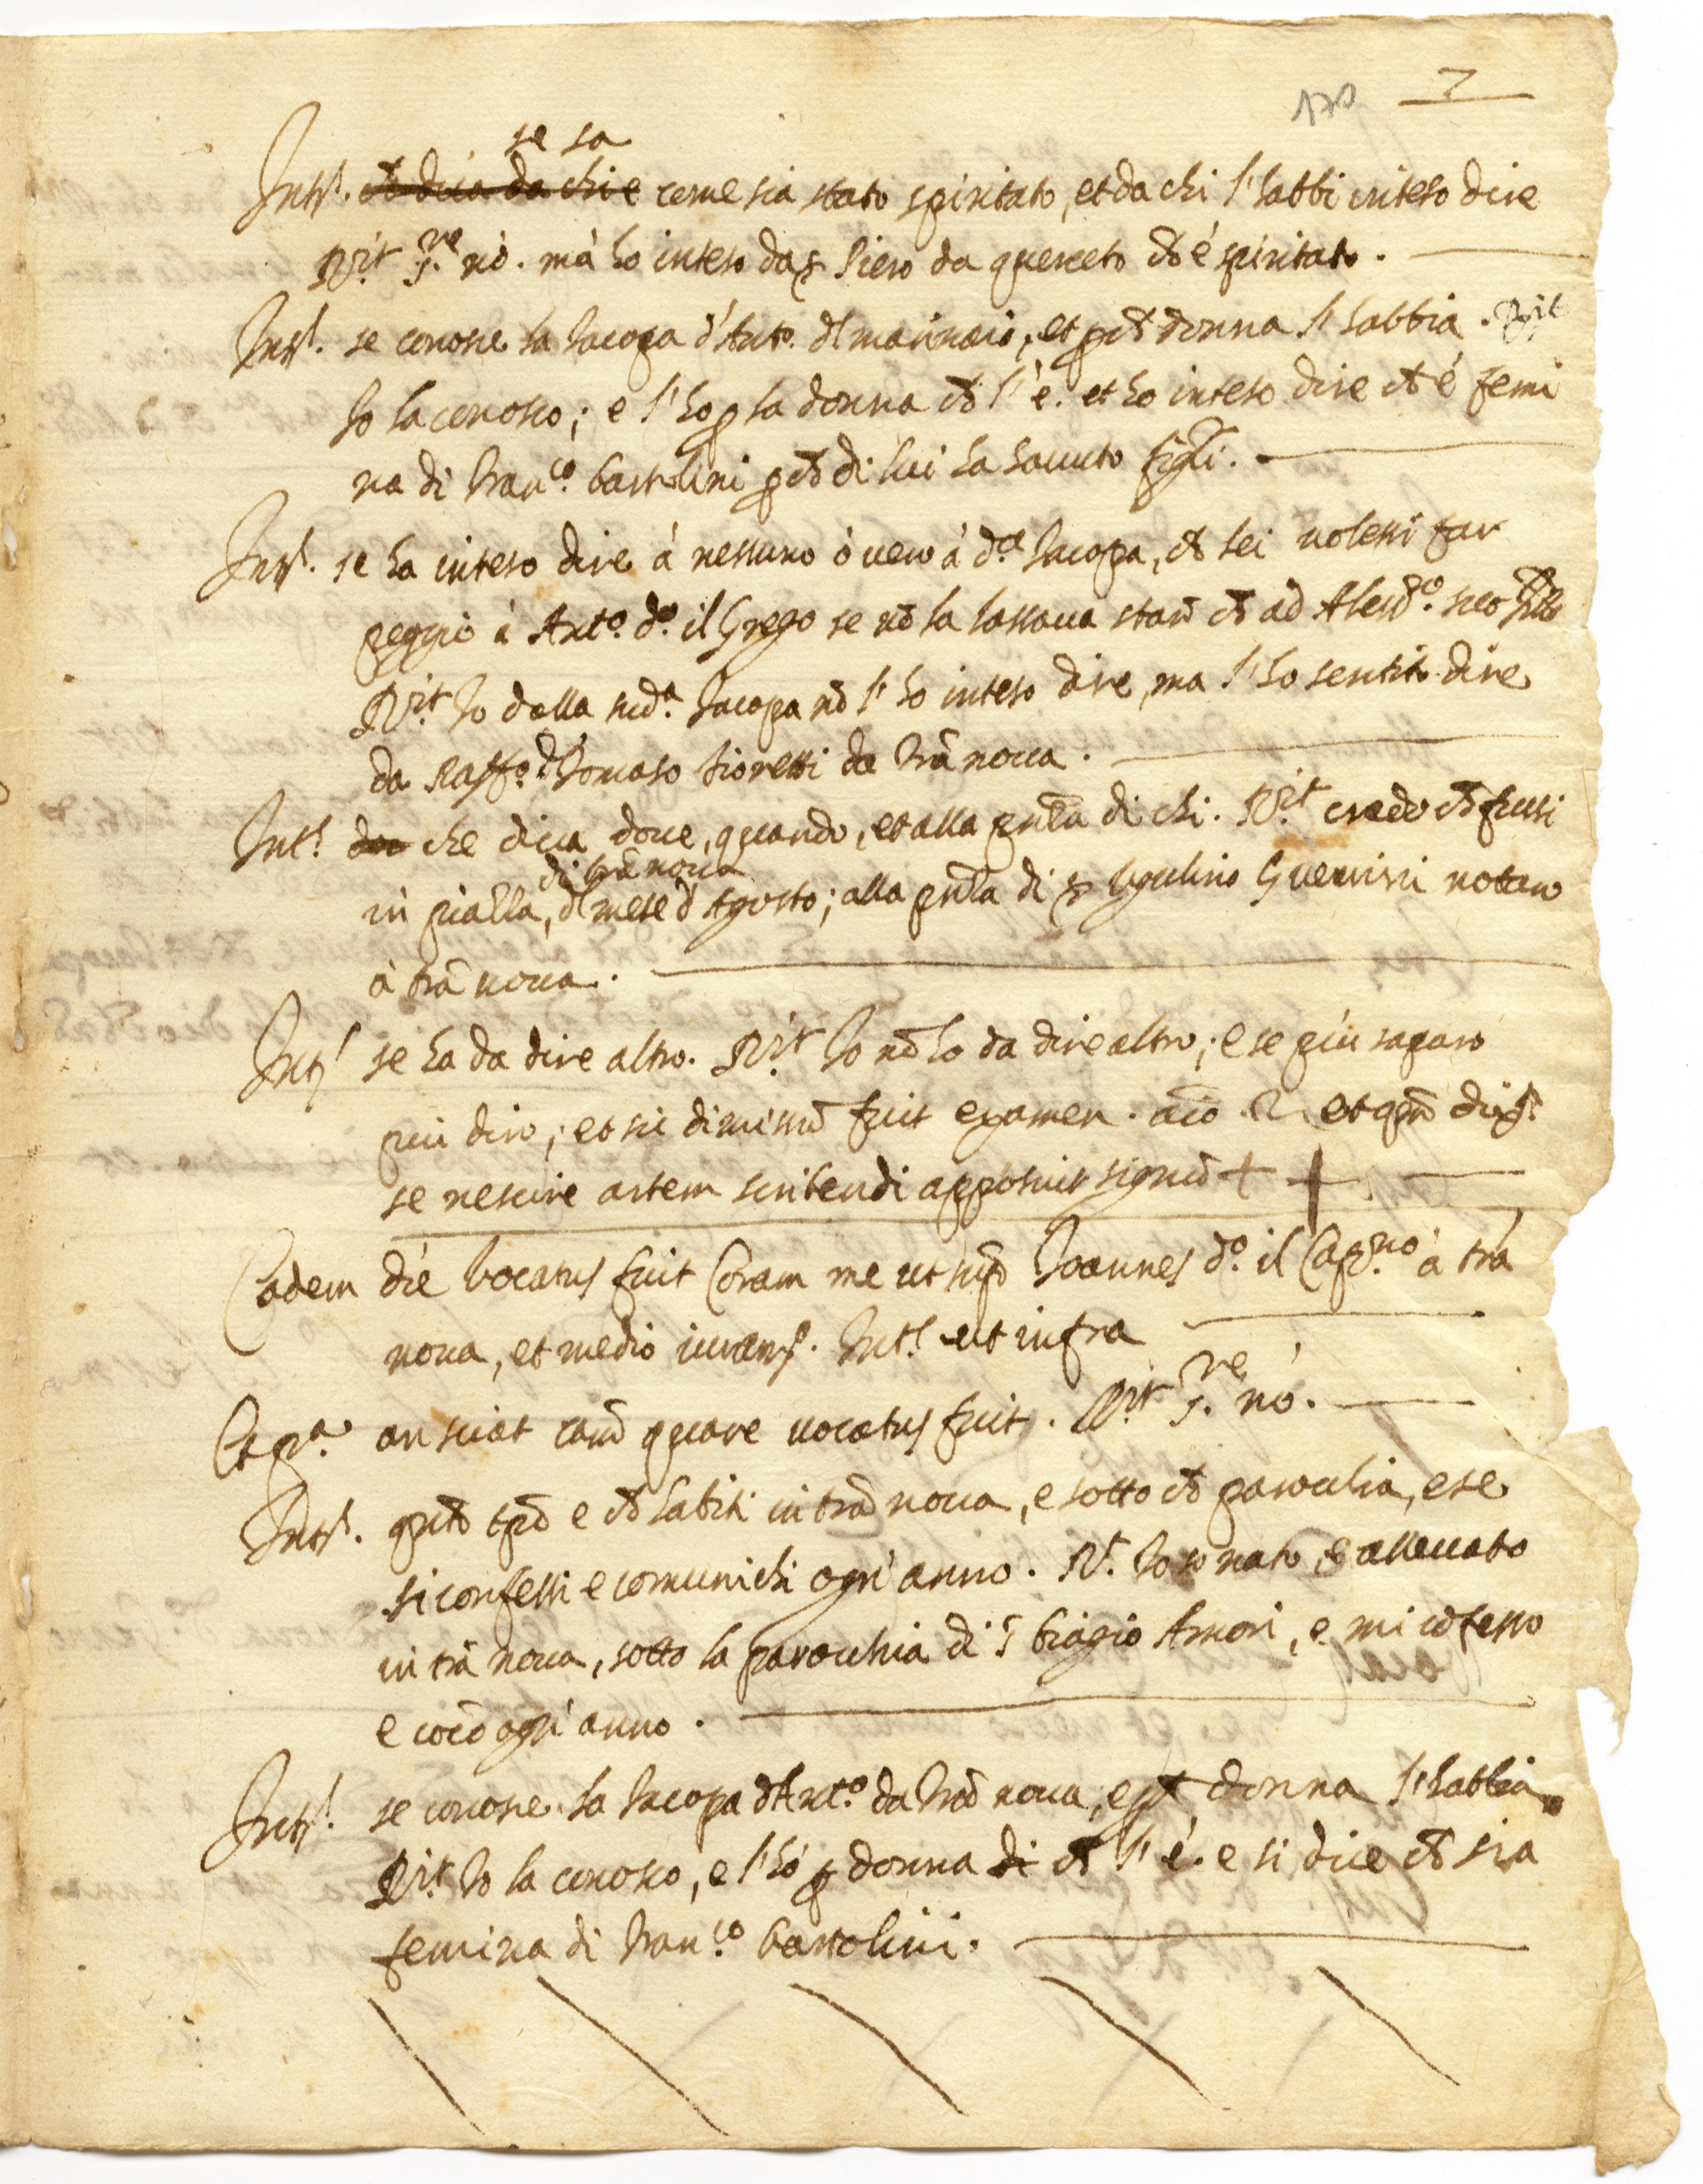 170 7
se sa
Intṛ. ch dica da chi e come sia stato spiritato, et da chi l'habbi inteso dire
Rit. S.re nò. mà ho inteso da s. Piero da querceto ch è spiritato.
Intṛ. se conosce la Jacopa d'Anto. dl marinaio, et p ch donna l'habbia. Rit
Io la conosco; e l'ho p la donna ch l'è. et ho inteso dire ch è femi
na di Fran.co bartolini p ch di lui ha hauuto figli.
Intṛ. se ha inteso dire à nessuno ò uero à d.a Jacopa, ch lei uolessi far
peggio à Ant.o d.o il Grego se nō la lassaua starē ch ad Alesd.o suo
Rit. Io dalla sud.a Jacopa nō l'ho inteso dire, ma l'ho sentito dire
da Raff.o d Tomaso fioretti da trā noua.
Int. che dica doue, quando, et alla pnza di chi. Rit. credo ch fussi
di trā noua
in pialla, dl mese d' Agosto; alla pnza di s. Ugulino Guerrini notaio
à trā noua.
Int. se ha da dire altro. Rit. Io nō ho da dire altro; e se più saparò
più dirò; et sic dimissū fuit examen. aīo et qm dixit
se nescire artem scribendi apposuit signū + +
Eadem die Vocatus fuit Coram me ut sup Joannes d.o il Cap.no à trà
noua, et medio iuramt. Int. ut infra
Et p.a an sciat causā quare uocatus fuit. Rit S.re nò.
Intṛ. qnto tpō e ch habiti in trā noua, e sotto ch parochia, e se
si confessi e comunichi ogni anno. R. Io so nato e alleuato
in trā noua, sotto la parochia di S. biagio Amori, e mi cōfesso
e comō ogni anno.
Intṛ. se conosce la Jacopa d Ant.o da trā noua, e p ch donna l'habbia
Rit. Io la conosco, e l'hò p donna di ch l'è. e si dice ch sia
femina di Fran.co bartolini.